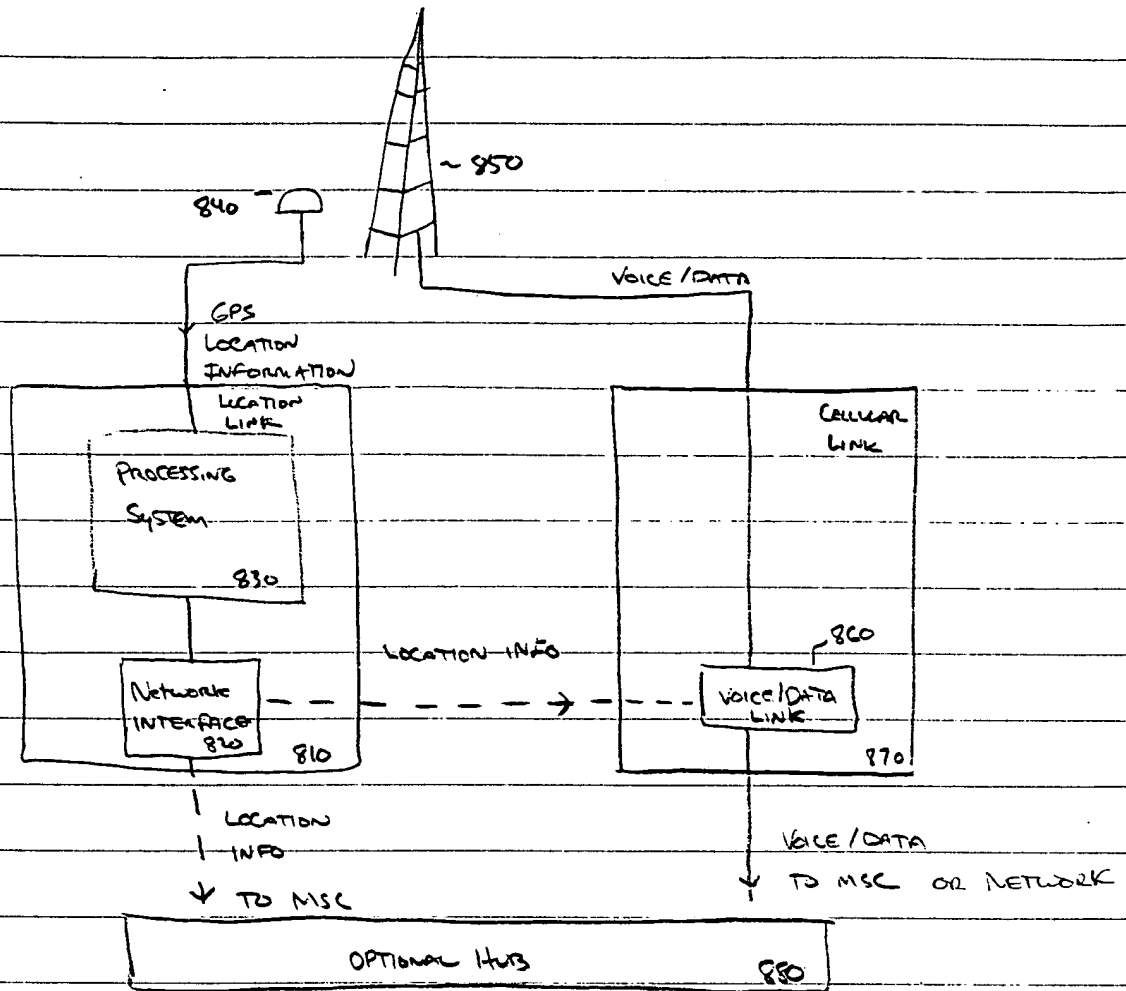 ~ 850
840
VOICE/DATA
GPS
LOCATION
INFORMATION
LOCATION
LINK
CELLULAR
LINK
PROCESSING
SYSTEM
830
860
LOCATION INFO
NETWORK
INTERFACE
820
810
VOICE/DATA
LINK
870
LOCATION
INFO
TO MSC
VOICE/DATA
TO MSC OR NETWORK
OPTIONAL HUB